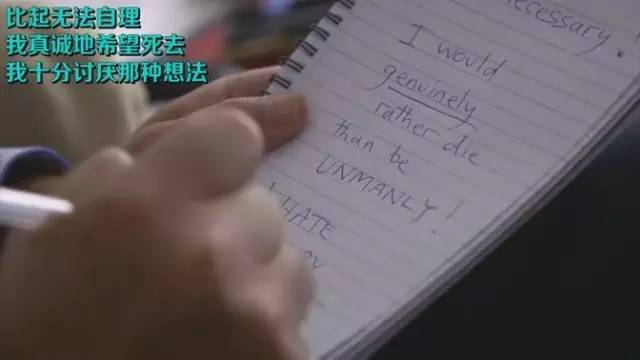 比起无法自理
我真诚地希望死去
我十分讨厌那种想法
necessary.
I would
genuinely
rather die
than be
UNMANLY!
I HATE